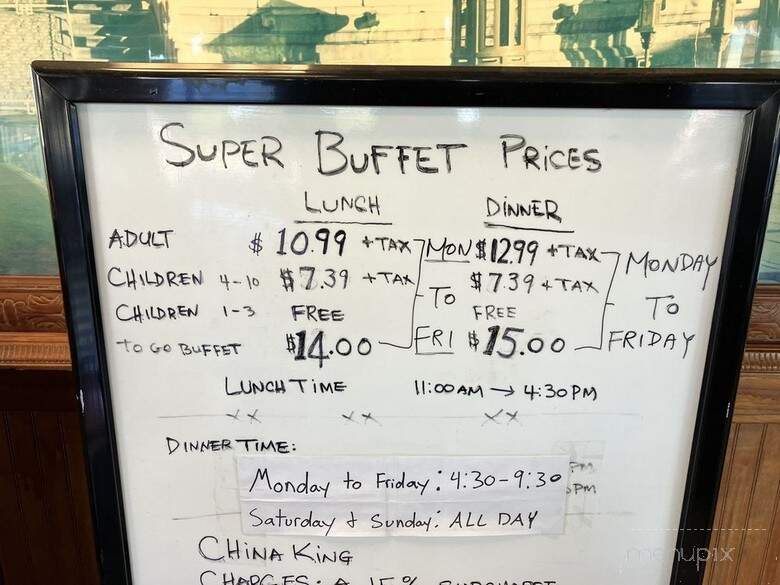 SUPER BUFFET PRICES
LUNCH DINNER
ADULT $10.99 +TAX MON $12.99 +TAX MONDAY
CHILDREN 4-10 $7.39 +TAX TO $7.39 +TAX TO
CHILDREN 1-3 FREE FREE
TO GO BUFFET $14.00 FRI $15.00 FRIDAY
LUNCH TIME 11:00AM → 4:30PM
XX XX XX
DINNER TIME:
Monday to Friday: 4:30-9:30 PM
Saturday & Sunday: ALL DAY PM
CHINA KING
CHARGES: A 15%
menupix